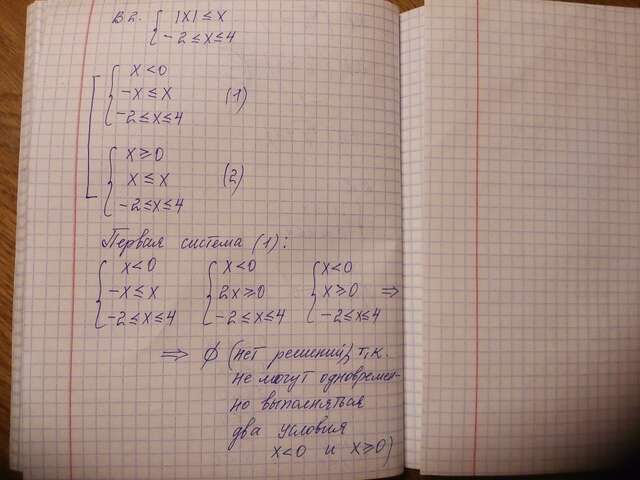 В 2. { |x| ≤ x
-2 ≤ x ≤ 4
x < 0
-x ≤ x (1)
-2 ≤ x ≤ 4
x ≥ 0
x ≤ x (2)
-2 ≤ x ≤ 4
Первая система (1):
{ x < 0 { x < 0 { x < 0
-x ≤ x 2x ≥ 0 x ≥ 0 ⇒
-2 ≤ x ≤ 4 -2 ≤ x ≤ 4 -2 ≤ x ≤ 4
⇒ ∅ (нет решений), т.к.
не могут одновремен-
но выполняться
два условия
x < 0 и x ≥ 0)